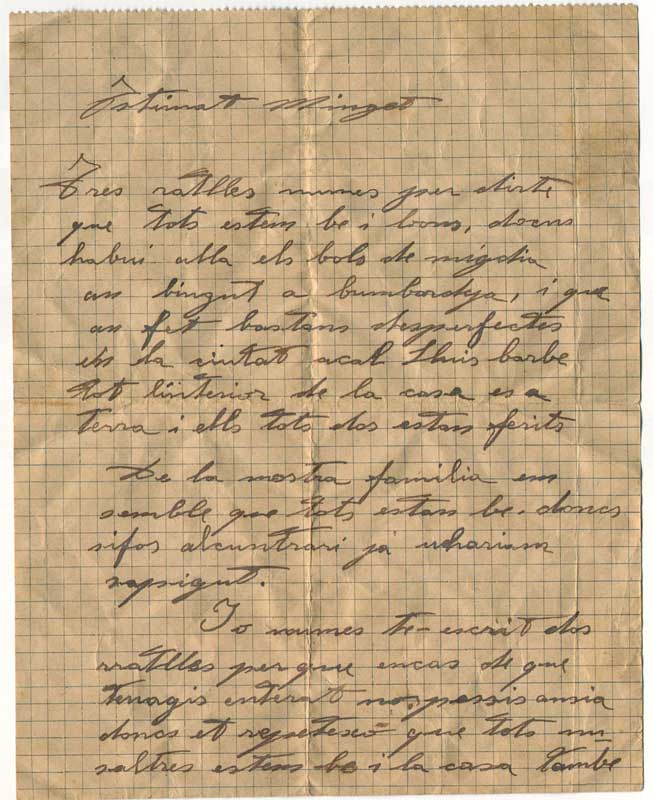 Estimat Minget
Tres ratlles numes per dirte
que tots estem be i bons, docns
habui alla els bols de migdia
an bingut a bumbardeja, i que
an fet bastans desperfectes
en la ciutat acal Lluis barbe
tot l'interior de la casa es a
terra i ells tots dos estan ferits
De la nostra familia em
semble que tots estan be. doncs
sifos alcuntrari ja uhariam
sapigut.
Jo numes te escrit dos
rratlles per que encas de que
terragis enterat nos passis ansia
doncs et repetesco que tots nu-
saltres estem be i la casa tambe